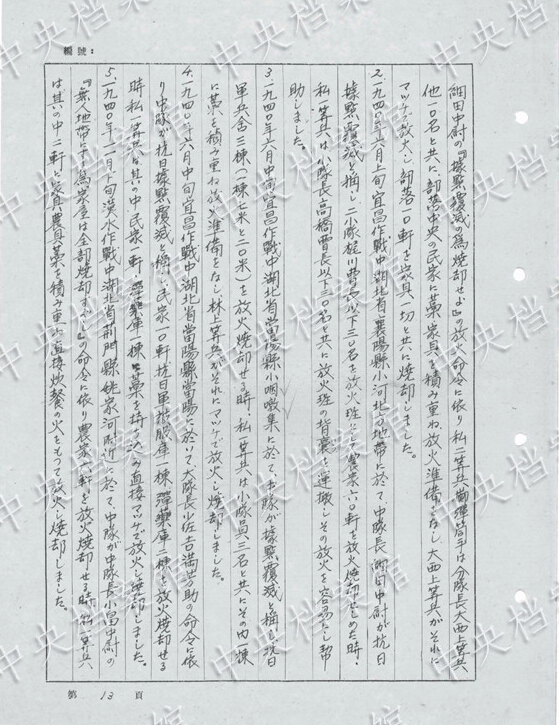 編號：
細田中尉の『據點覆滅の為焼却せよ』の放火命令に依り私二等兵擲彈筒手は分隊長大西上等兵
他一〇名と共に、部落中央の民家に藁家具を積み重ね放火準備をなし大西上等兵がそれに
マッチで放火し部落一〇軒を家具一切と共に焼却しました。
2.一九四〇年六月上旬宜昌作戰中湖北省襄陽縣小河北方地帯に於て、中隊長細田中尉が抗日
據點覆滅と稱し、小隊 曹長以下三〇名を放火班とし農家六〇軒を放火焼却せしめた時、
私一等兵は小隊長高橋曹長以下三〇名と共に放火班の背嚢を運搬しその放火を容易にし幇
助しました。
3.一九四〇年六月中旬宜昌作戰中湖北省當陽縣小 集に於て、中隊が據點覆滅と稱し抗日
軍兵舎三棟（一棟七米と二〇米）を放火焼却せる時、私一等兵は小隊員三名と共にその内一棟
に藁を積み重ね放火準備をなし林上等兵がそれにマッチで放火し焼却しました。
4.一九四〇年六月中旬宜昌作戰中湖北省當陽縣當陽に於いて大隊長少佐吉満 助の命令に依
り中隊が抗日據點覆滅と稱し民家一〇軒、抗日軍 庫一棟 彈藥庫二棟を放火焼却せる
時私一等兵が其の中、民家一軒、彈藥庫一棟に藁を持ち込み直接マッチで放火し焼却しました。
5.一九四〇年十一月下旬漢水作戰中湖北省荊門縣姚家河附近に於て、中隊が中隊長小畠中尉の
『無人地帯に下 家屋は全部焼却すべし』の命令に依り農家六軒を放火焼却せる時私一等兵
は其の中二軒に家具農具藁を積み重ね直接炊餐の火をもって放火し焼却しました。
第 13 頁
中央档案馆